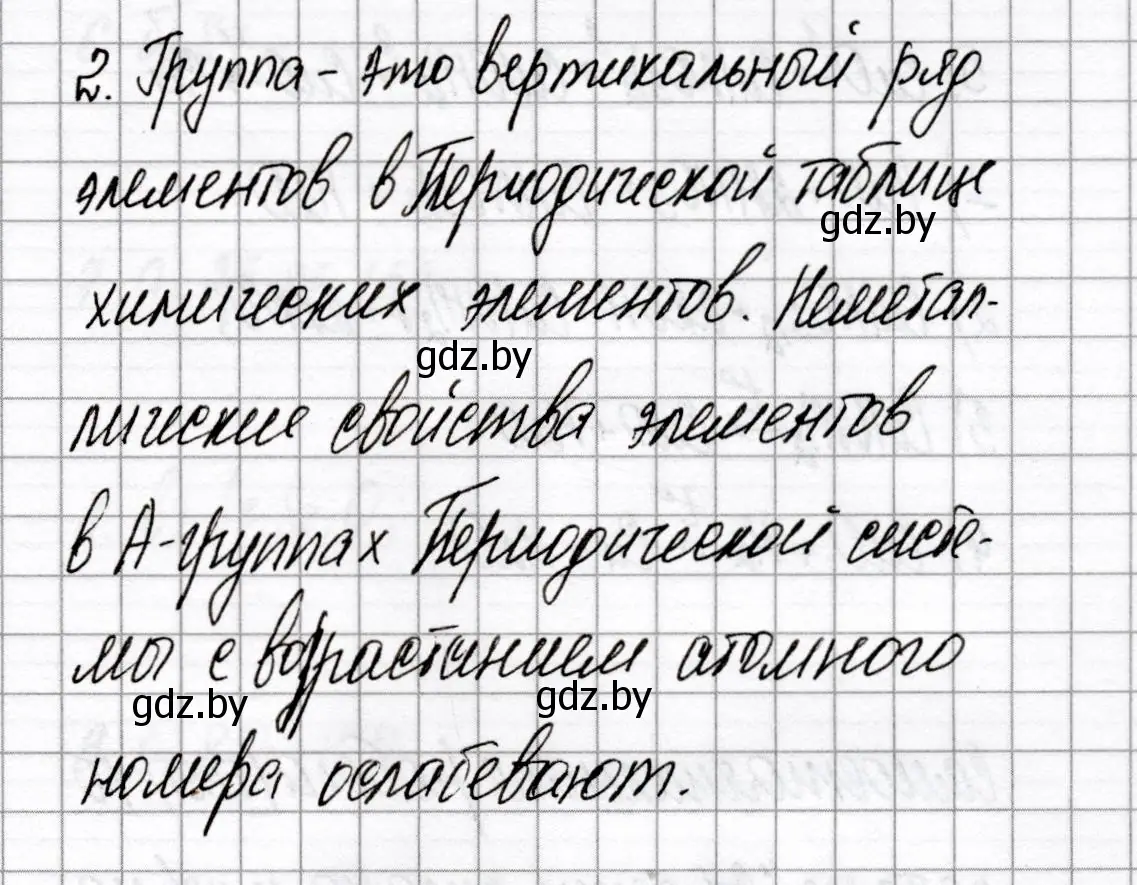 2. Группа - это вертикальный ряд
элементов в Периодической таблице
gdz.by
химических элементов. Неметал-
gdz.by
лические свойства элементов
в А-группах Периодической систе-
мы с возрастанием атомного
gdz.by gdz.by
номера ослабевают.